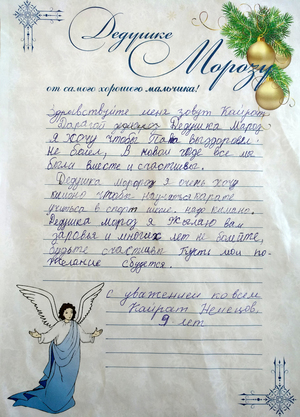 Дедушке
Морозу
от самого хорошего мальчика!
Здравствуйте меня зовут Кайрат.
Дарагой Дедушка Мороз
Я хочу чтобы Папа выздоровел
не болел, В новом годе все мы
были вместе и счастливы.
Дедушка мороз я очень хочу
кимоно чтобы каратэ
учиться в спорт школе. надо кимоно.
Дедушка мороз я Желаю вам
здаровья и многих лет не болейте,
будьте счастливы Пусть мои по-
желание сбудется.
с уважением ко всем
Кайрат Немецов.
9 лет